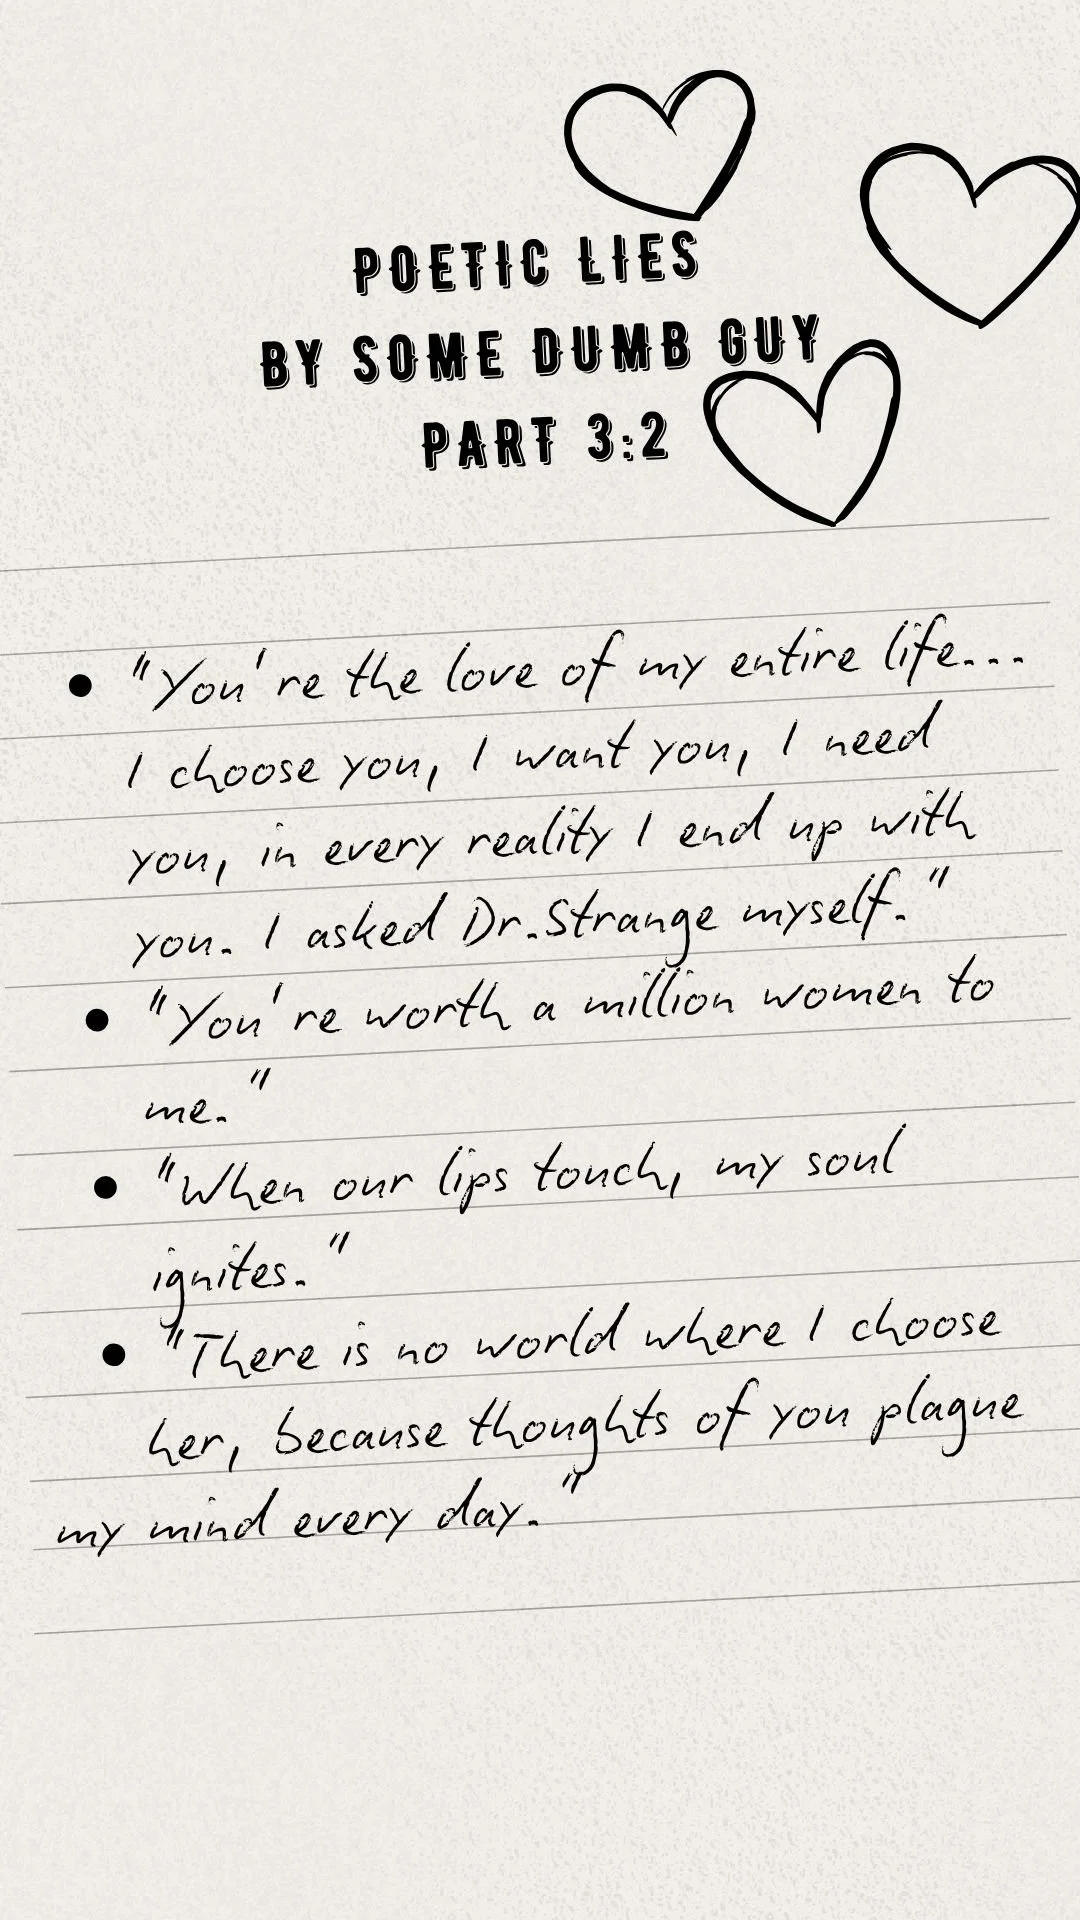 POETIC LIES
BY SOME DUMB GUY
PART 3:2
• "You're the love of my entire life...
I choose you, I want you, I need
you, in every reality I end up with
you. I asked Dr.Strange myself."
• "You're worth a million women to
me."
• "When our lips touch, my soul
ignites."
• "There is no world where I choose
her, because thoughts of you plague
my mind every day."